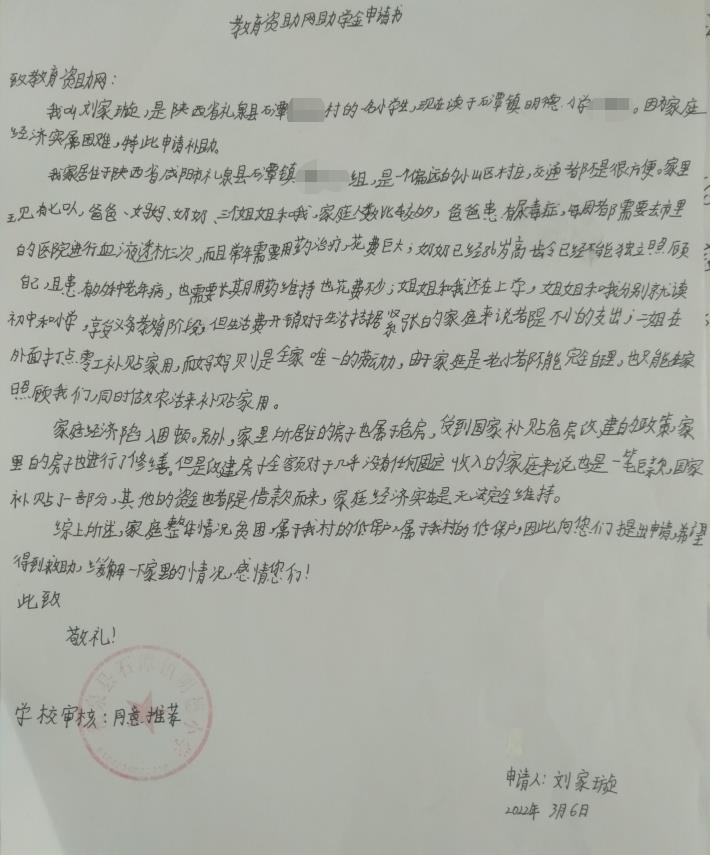 教育资助网助学金申请书
致教育资助网：
我叫刘家璇，是陕西省礼泉县石潭 村的一名小学生，现在读于石潭镇明德小学 。因为家庭
经济实属困难，特此申请补助。
我家居住于陕西省咸阳市礼泉县石潭镇 组，是一个偏远的小山区村庄，交通都不是很方便。家里
现有七口人，爸爸、妈妈、奶奶、三个姐姐和我，家庭人数比较的多，爸爸患有尿毒症，每周都需要去市里
的医院进行血液透析三次，而且常年需要用药治疗，花费巨大；奶奶已经86岁高龄已经不能独立照顾
自己，且患有多种老年病，也需要长期用药维持也花费不少；姐姐和我还在上学，姐姐和我分别就读
初中和小学，享受义务教育阶段，但生活费开销对于生活拮据紧张的家庭来说都是不小的支出；二姐在
外面打点零工补贴家用，而妈妈则是全家唯一的劳动力，由于家庭是老小都不能完全自理，也只能在家
照顾我们，同时做农活来补贴家用。
家庭经济陷入困顿。另外，家里所居住的房子也属于危房，受到国家补贴危房改建的政策，家
里的房子也进行了修缮。但是改建房子全额对于几乎没有任何固定收入的家庭来说也是一笔巨款，国家
补贴了一部分，其他的资金也都是借款而来，家庭经济实在是无法完全维持。
综上所述，家庭整体情况贫困，属于我村的低保户，属于我村的低保户，因此向您们提出申请，希望
得到救助，缓解一下家里的情况，感情您们！
此致
敬礼！
学校审核：同意推荐
申请人：刘家璇
2022年 3月6日